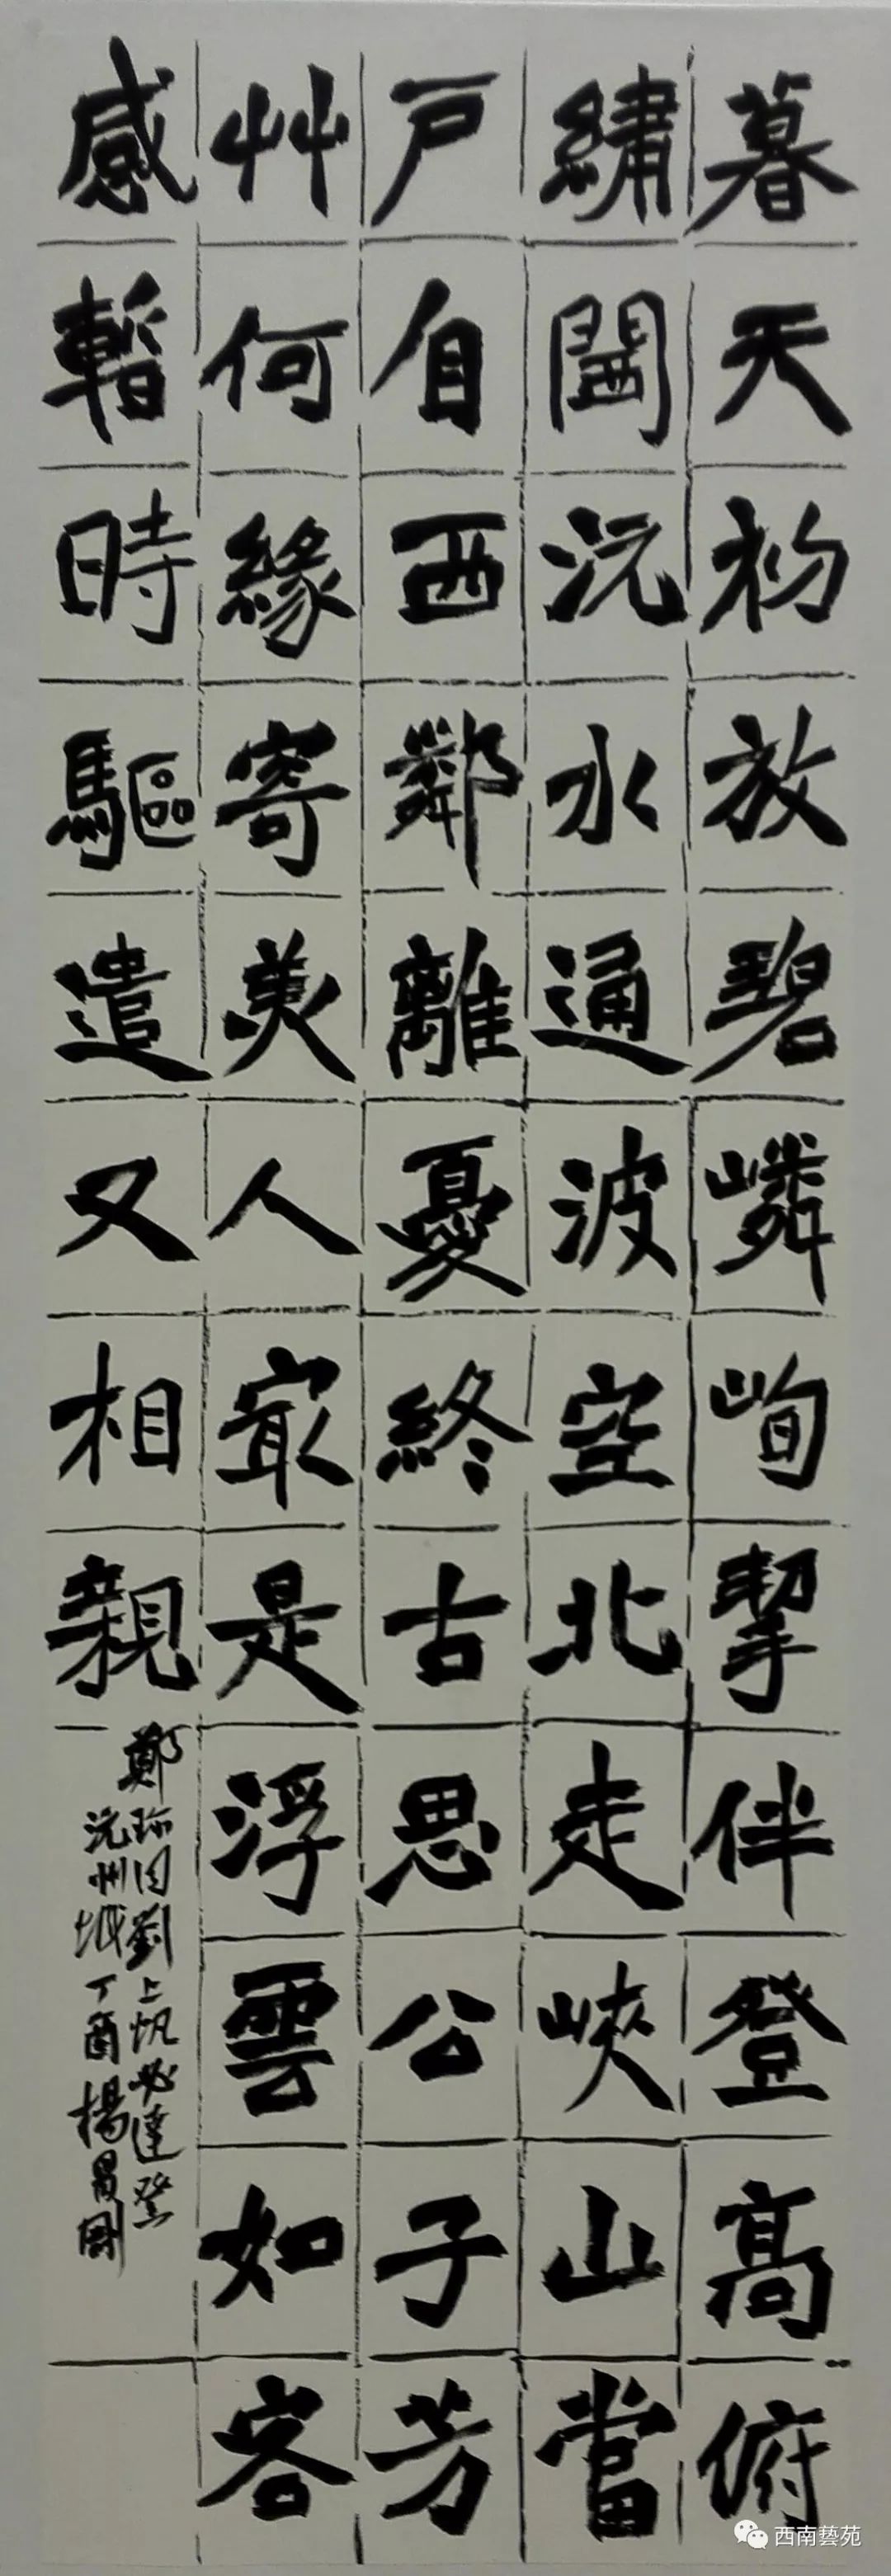 暮天初放碧嶙峋挈伴登高俯
繡闉沅水通波空北走峽山當
戶自西鄰離憂終古思公子芳
艸何緣寄美人冣是浮雲如客
感暫時驅遣又相親
鄭珍同劉上帆必達登
沅州城丁酉楊昌剛
西南藝苑